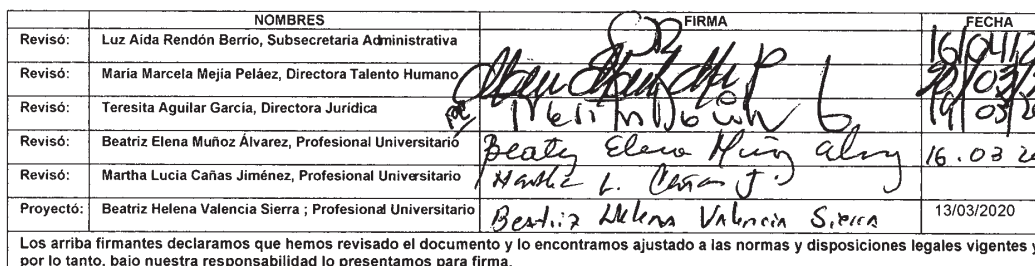 NOMBRES FIRMA FECHA
Revisó: Luz Aida Rendón Berrío, Subsecretaria Administrativa 16/04/2
Revisó: Maria Marcela Mejía Peláez, Directora Talento Humano
Revisó: Teresita Aguilar García, Directora Jurídica 19/03/20
Revisó: Beatriz Elena Muñoz Álvarez, Profesional Universitario Beatriz Elena Muñoz Alvarez 16.03.20
Revisó: Martha Lucia Cañas Jiménez, Profesional Universitario Martha L. Cañas J.
Proyectó: Beatriz Helena Valencia Sierra ; Profesional Universitario Beatriz Helena Valencia Sierra 13/03/2020
Los arriba firmantes declaramos que hemos revisado el documento y lo encontramos ajustado a las normas y disposiciones legales vigentes y
por lo tanto, bajo nuestra responsabilidad lo presentamos para firma.